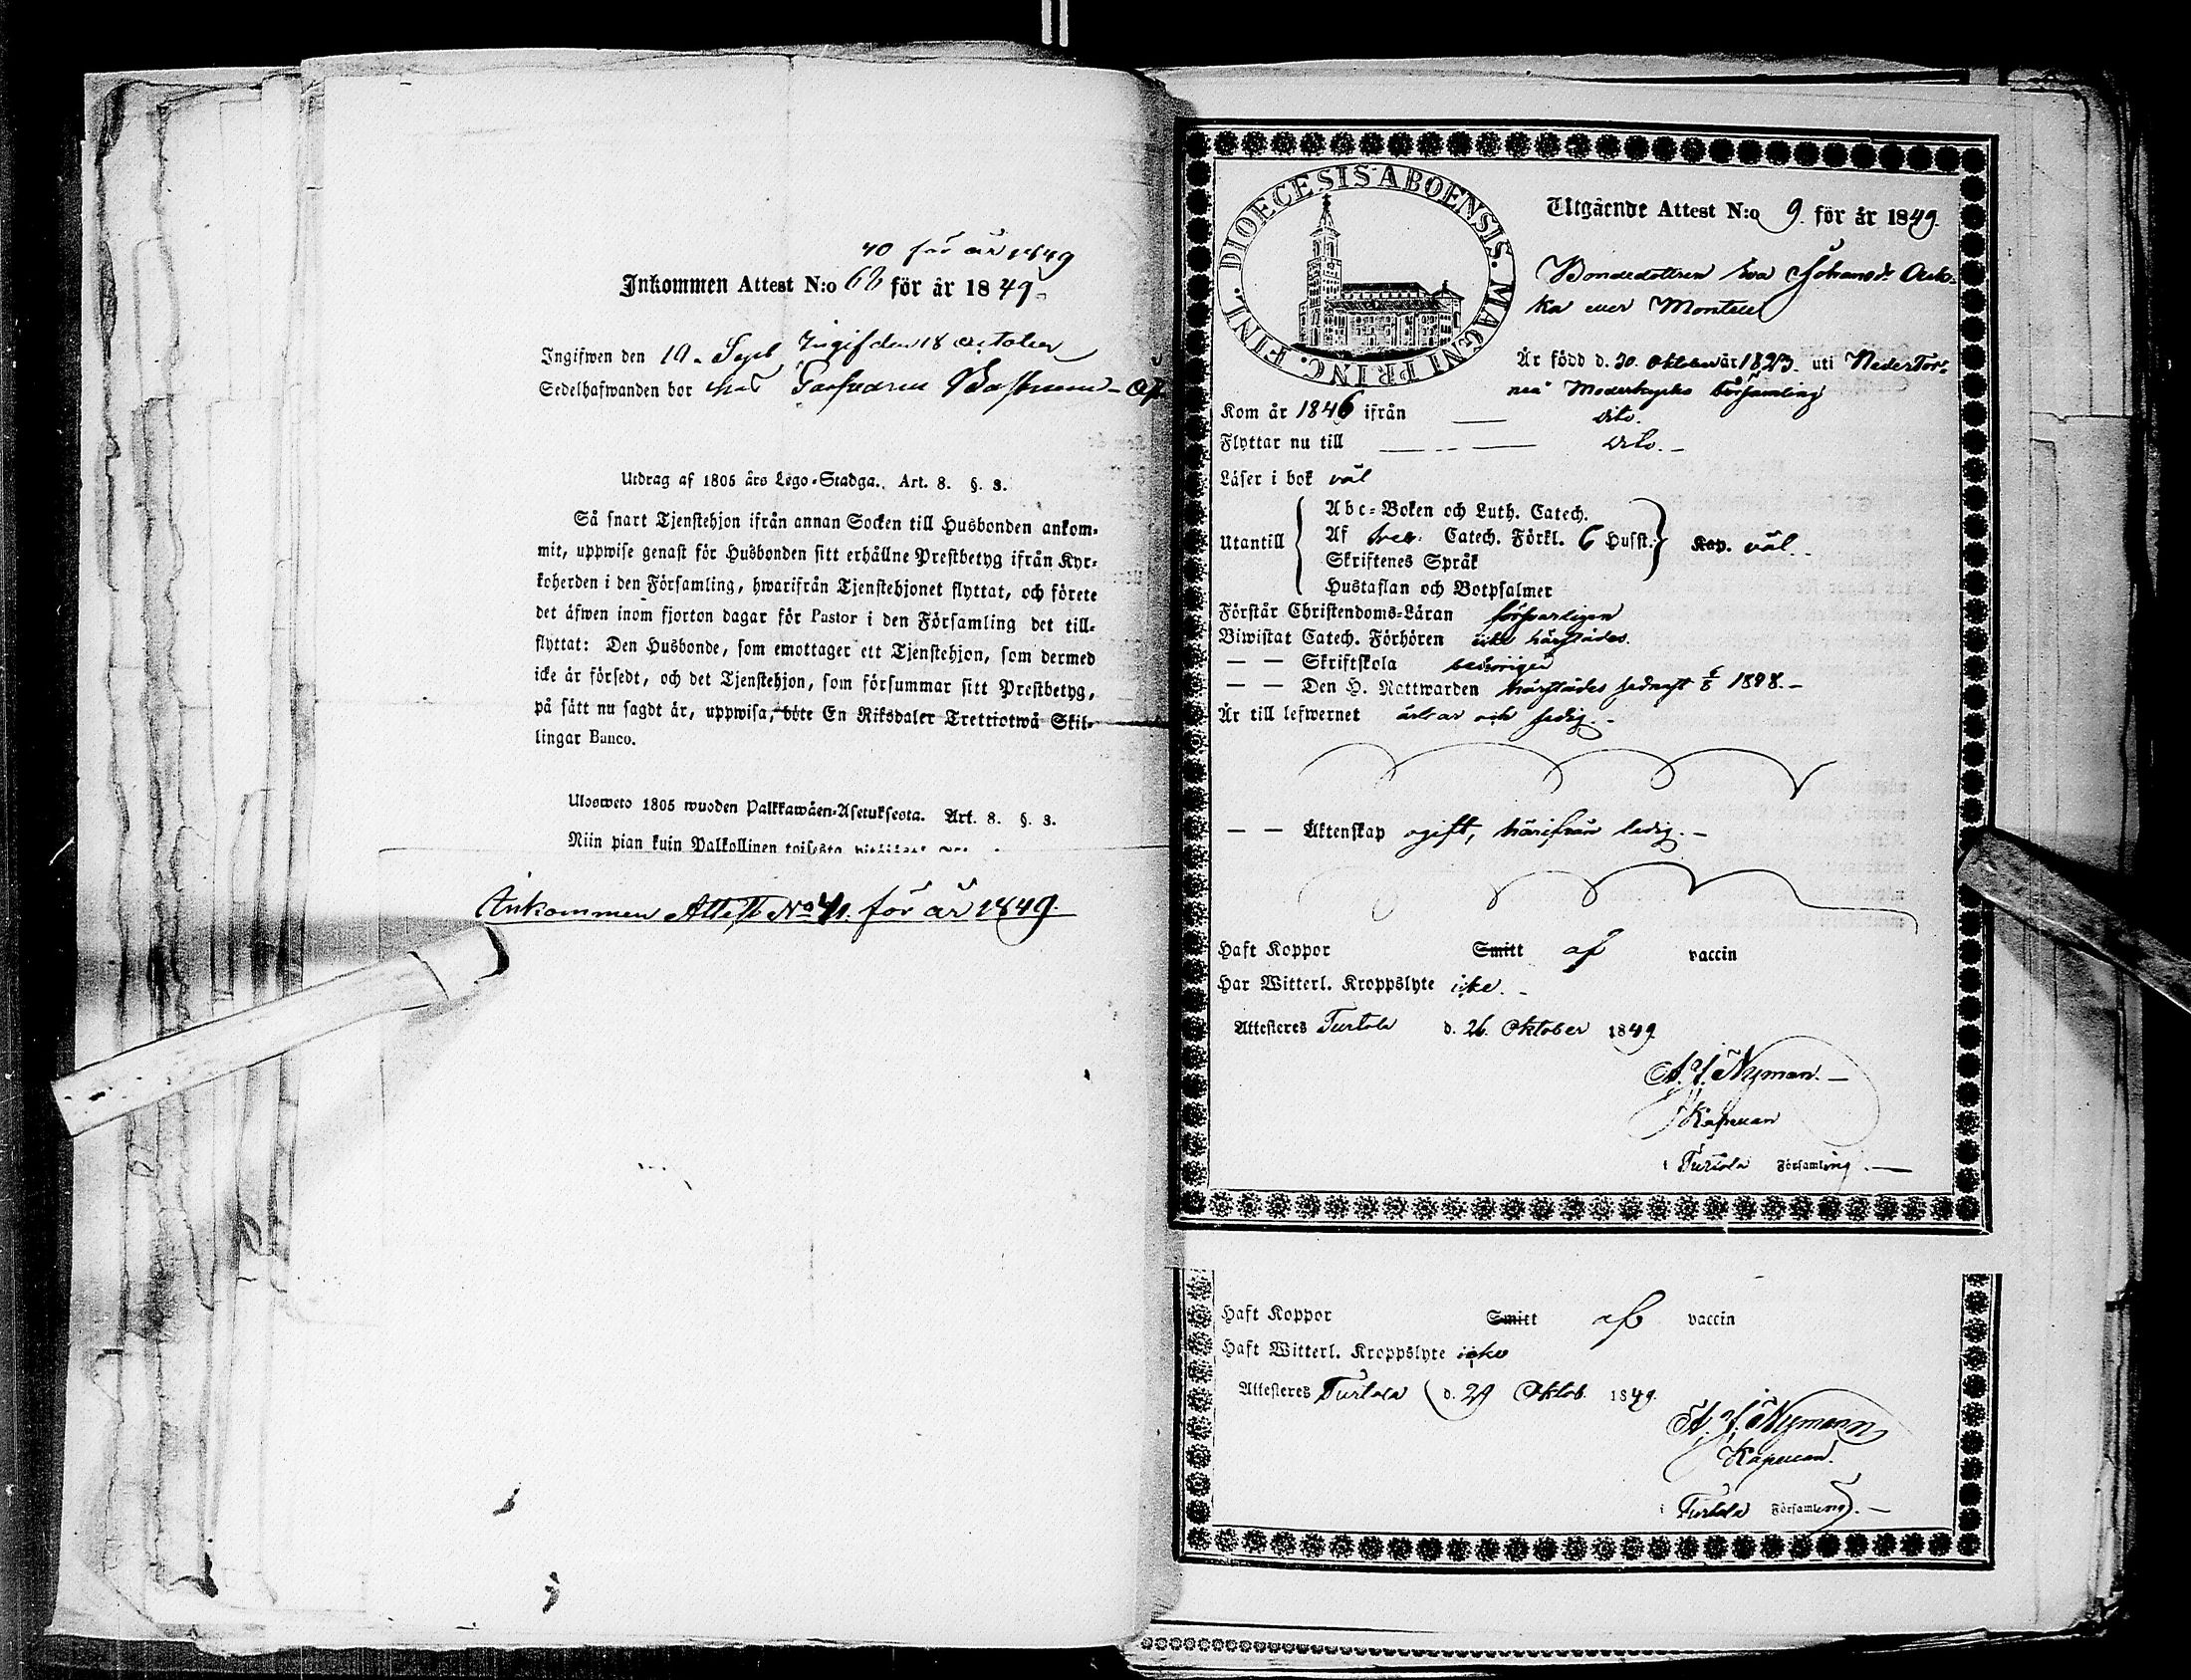 40 för år 1849
Inkommen Attest N:o 68 för år 1849.
Ingifwen den 10. Sept Ingif den 18 october
Sedelhafwanden bor hos
Utdrag af 1805 års Lego-Stadga. Art. 8. §. 3.
Så snart Tjenstehjon ifrån annan Socken till Husbonden ankom-
mit, uppwise genast för Husbonden sitt erhållne Prestbetyg ifrån Kyr-
koherden i den Församling, hwarifrån Tjenstehjonet flyttat, och förete
det äfwen inom fjorton dagar för Pastor i den Församling det till-
flyttat: Den Husbonde, som emottager ett Tjenstehjon, som dermed
icke är försedt, och det Tjenstehjon, som försummar sitt Prestbetyg,
på sätt nu sagdt är, uppwisa, böte En Riksdaler Trettiotwå Skil-
lingar Banco.
Ulosweto 1805 wuoden Palkkawäen-Asetuksesta. Art. 8. §. 3.
Niin pian kuin Palkollinen toisesta
Inkommen Attest No 41. för år 1849.
DIOECESIS ABOENSIS. MAGNI PRINC. FINL.
Utgående Attest N:o 9. för år 1849.
Bondedottren Eva Johansd:r
ka
Är född d. 30. Oktober år 1823. uti NederTor-
neå Moderkyrko Församling
Kom år 1846 ifrån — dito.
Flyttar nu till — dito. —
Läser i bok väl
Utantill
Abc-Boken och Luth. Catech.
Af Sveb: Catech. Förkl. 6 Husst. Kap. väl.
Skriftenes Språk
Hustaflan och Botpsalmer
Förstår Christendoms-Läran försvarligen
Biwistat Catech. Förhören icke härstädes.
— — Skriftskola
— — Den H. Nattwarden härstädes sednast 1848. —
Är till lefwernet ärbar och sedig. —
— — Äktenskap ogift, härifrån ledig. —
Haft Koppor Smitt af vaccin
Har Witterl. Kroppslyte icke. -
Attesteres Turtola d. 26. Oktober 1849
A. J. Nyman. —
Kapellan
i Turtola Församling. —
Haft Koppor Smitt af vaccin
Haft Witterl. Kroppslyte icke
Attesteres Turtola d. 29 Oktob. 1849.
A. J. Nyman
Kapellan.
i Turtola Församling. —